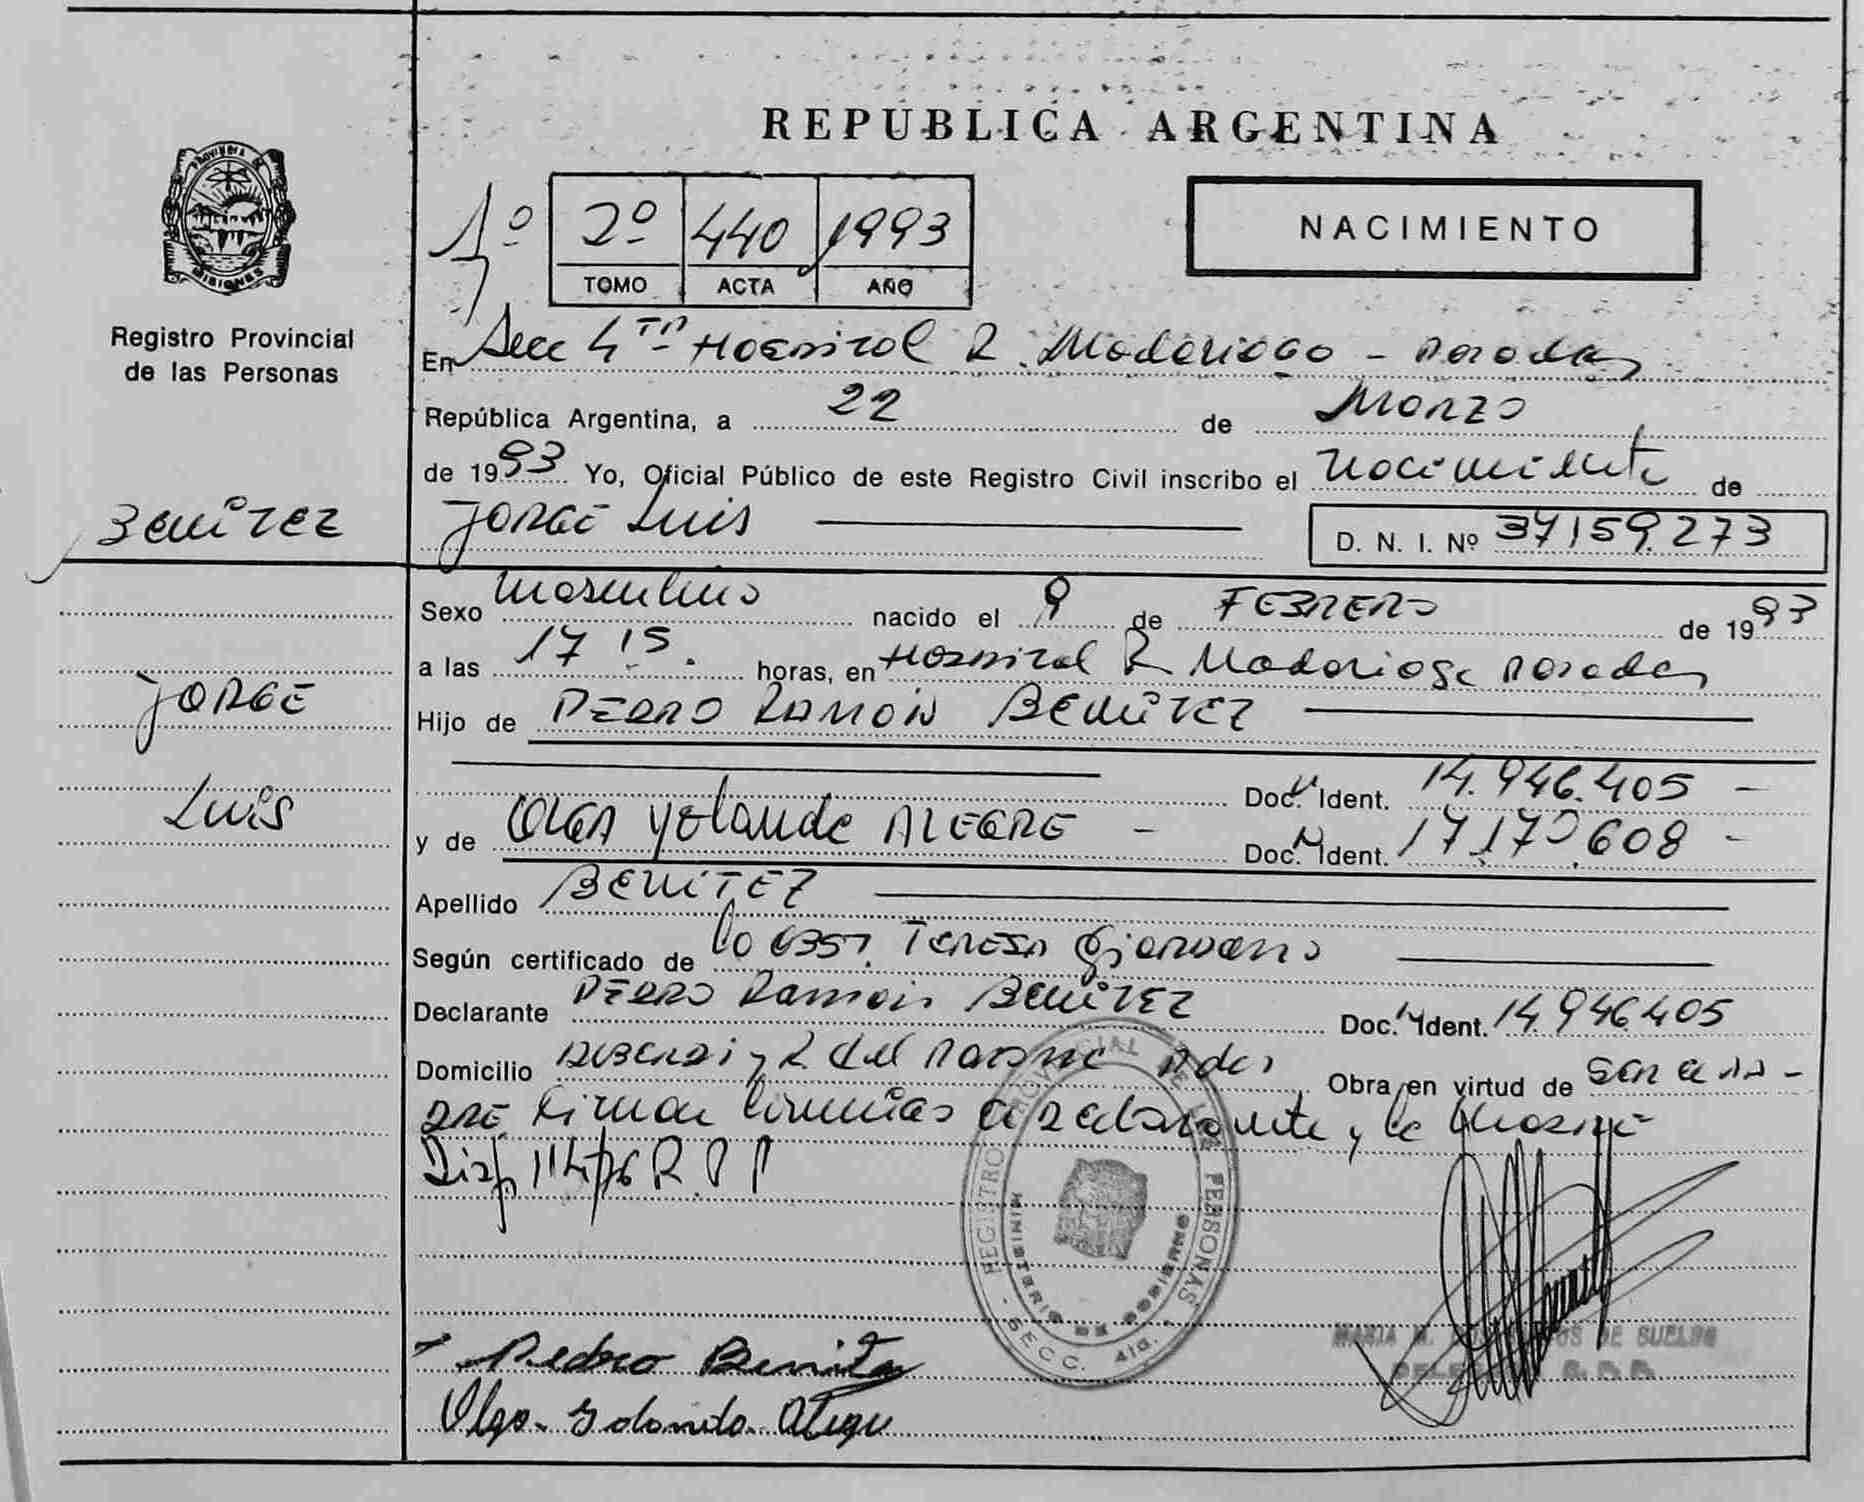 REPUBLICA ARGENTINA
PROVINCIA DE
MISIONES
Registro Provincial
de las Personas
1º
2º 440 1993
TOMO ACTA AÑO
NACIMIENTO
En Secc 4ta Hospital R. Madariaga - Posadas
República Argentina, a 22 de Marzo
de 1993 Yo, Oficial Público de este Registro Civil inscribo el nacimiento de
BENITEZ
JORGE LUIS
D. N. I. Nº 37159.273
Sexo masculino nacido el 9 de FEBRERO de 1993
a las 17 15. horas, en Hospital R Madariaga Posadas
JORGE
Hijo de PEDRO RAMON BENITEZ
Doc. Ident. 14.946.405 -
LUIS
y de OLGA Yolanda ALEGRE - Doc. Ident. 17.170.608 -
Apellido BENITEZ
Según certificado de la obst. TERESA Giordano
Declarante PEDRO Ramon BENITEZ Doc. Ident. 14.946.405
Domicilio y R del Obra en virtud de ser el pa-
dre. Firman el declarante y la madre
Disp. 114/76 R. P P
REGISTRO PROVINCIAL DE LAS PERSONAS
MINISTERIO DE GOBIERNO
- SECC. 4ta. -
Pedro Benitez
Olga Yolanda Alegre
MARIA M. DE SUELDO